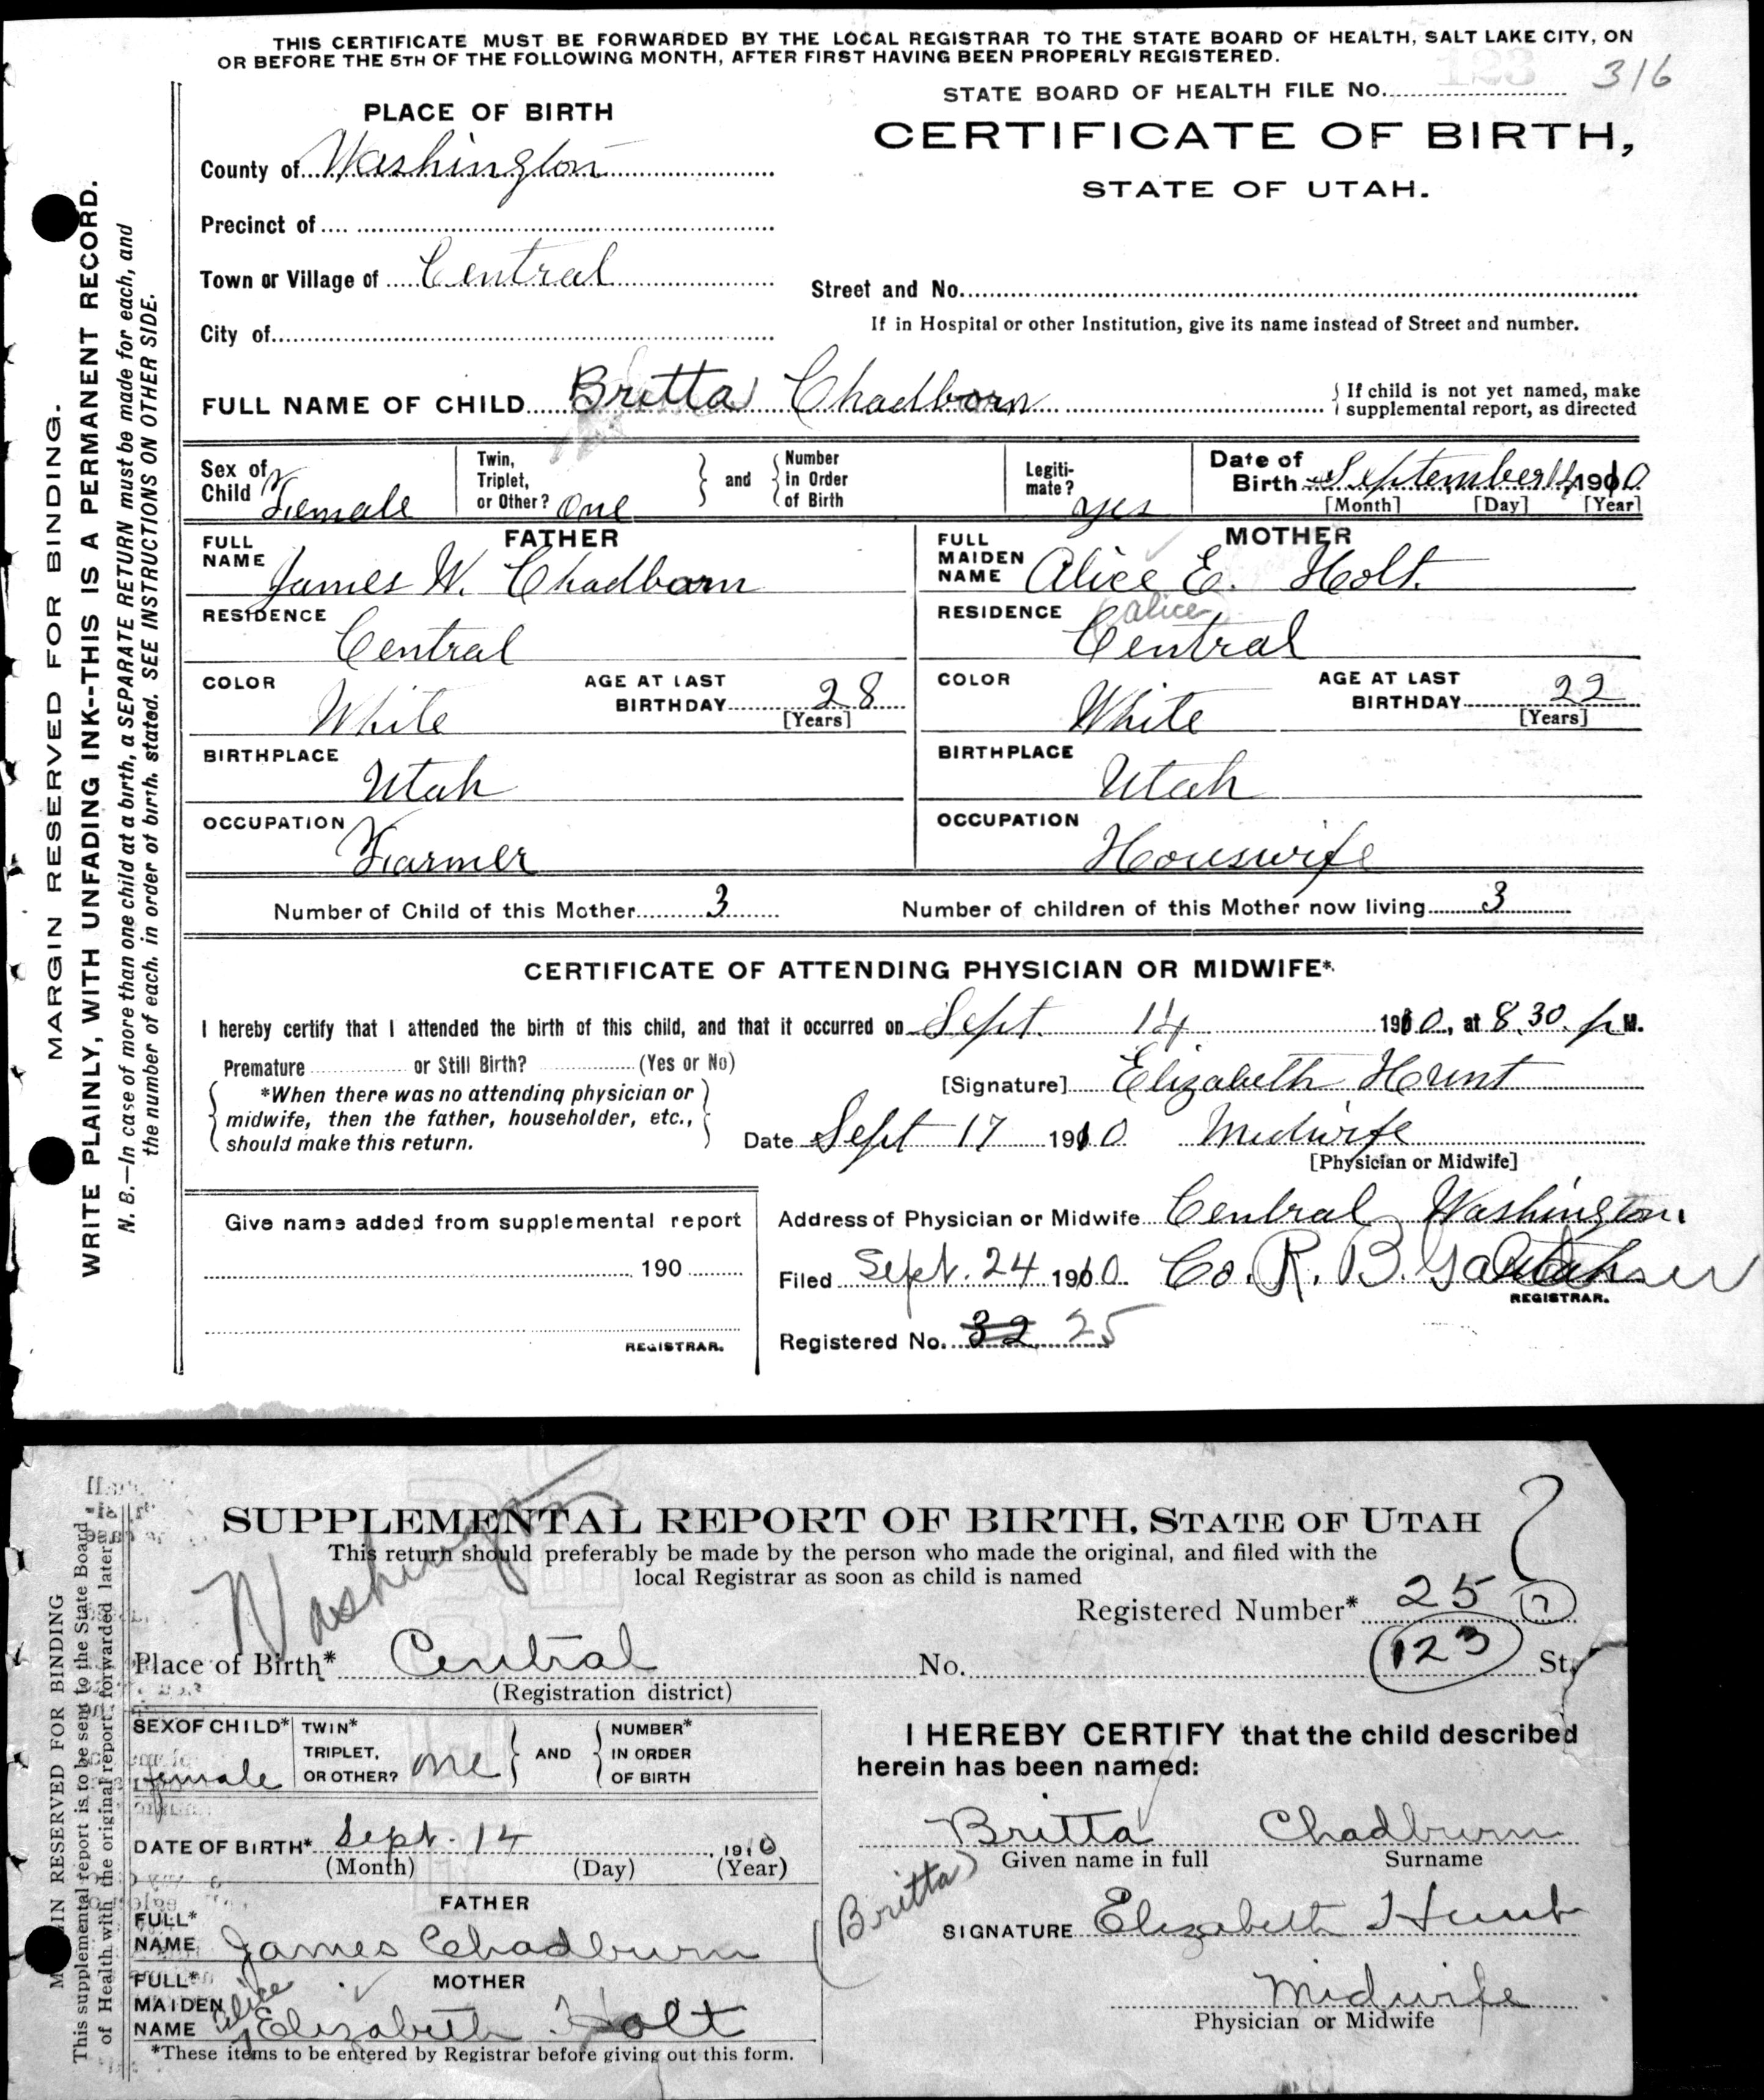 THIS CERTIFICATE MUST BE FORWARDED BY THE LOCAL REGISTRAR TO THE STATE BOARD OF HEALTH, SALT LAKE CITY, ON
OR BEFORE THE 5TH OF THE FOLLOWING MONTH, AFTER FIRST HAVING BEEN PROPERLY REGISTERED.
123 316
STATE BOARD OF HEALTH FILE No.
CERTIFICATE OF BIRTH,
STATE OF UTAH.
PLACE OF BIRTH
County of Washington
Precinct of
Town or Village of Central
City of
Street and No.
If in Hospital or other Institution, give its name instead of Street and number.
FULL NAME OF CHILD Britta Chadborn
If child is not yet named, make
supplemental report, as directed
Sex of Child Female
Twin, Triplet, or Other? One
and Number In Order of Birth
Legiti-mate? yes
Date of Birth September 14 1910
[Month] [Day] [Year]
FATHER
FULL NAME James W. Chadborn
RESIDENCE
Central
COLOR White
AGE AT LAST BIRTHDAY 28
[Years]
BIRTHPLACE
Utah
OCCUPATION
Farmer
MOTHER
FULL MAIDEN NAME Alice E. Holt
RESIDENCE (alice)
Central
COLOR White
AGE AT LAST BIRTHDAY 22
[Years]
BIRTHPLACE
Utah
OCCUPATION
Houswife
Number of Child of this Mother 3
Number of children of this Mother now living 3
CERTIFICATE OF ATTENDING PHYSICIAN OR MIDWIFE*
I hereby certify that I attended the birth of this child, and that it occurred on Sept. 14 1910, at 8.30 p M.
Premature or Still Birth? (Yes or No)
*When there was no attending physician or
midwife, then the father, householder, etc.,
should make this return.
[Signature] Elizabeth Hunt
Date Sept 17 1910 Midwife
[Physician or Midwife]
Give name added from supplemental report
190
REGISTRAR.
Address of Physician or Midwife Central Washington
Filed Sept. 24 1910 Co. Utah R. B.
REGISTRAR.
Registered No. 32 25
MARGIN RESERVED FOR BINDING.
WRITE PLAINLY, WITH UNFADING INK--THIS IS A PERMANENT RECORD.
N. B.—In case of more than one child at a birth, a SEPARATE RETURN must be made for each, and
the number of each, in order of birth, stated. SEE INSTRUCTIONS ON OTHER SIDE.
SUPPLEMENTAL REPORT OF BIRTH, STATE OF UTAH
This return should preferably be made by the person who made the original, and filed with the
local Registrar as soon as child is named
Washington
Registered Number* 25 7
Place of Birth* Central No. 123 St.
(Registration district)
SEX OF CHILD* female
TWIN* TRIPLET, OR OTHER? one
AND NUMBER* IN ORDER OF BIRTH
DATE OF BIRTH* Sept. 14, 1910
(Month) (Day) (Year)
FATHER
FULL* NAME James Chadburn
MOTHER
FULL* MAIDEN NAME Alice Elizabeth Holt
*These items to be entered by Registrar before giving out this form.
I HEREBY CERTIFY that the child described
herein has been named:
Britta Chadburn
Given name in full Surname
(Britta)
SIGNATURE Elizabeth Hunt
Midwife
Physician or Midwife
MARGIN RESERVED FOR BINDING
This supplemental report is to be sent to the State Board
of Health with the original report forwarded later